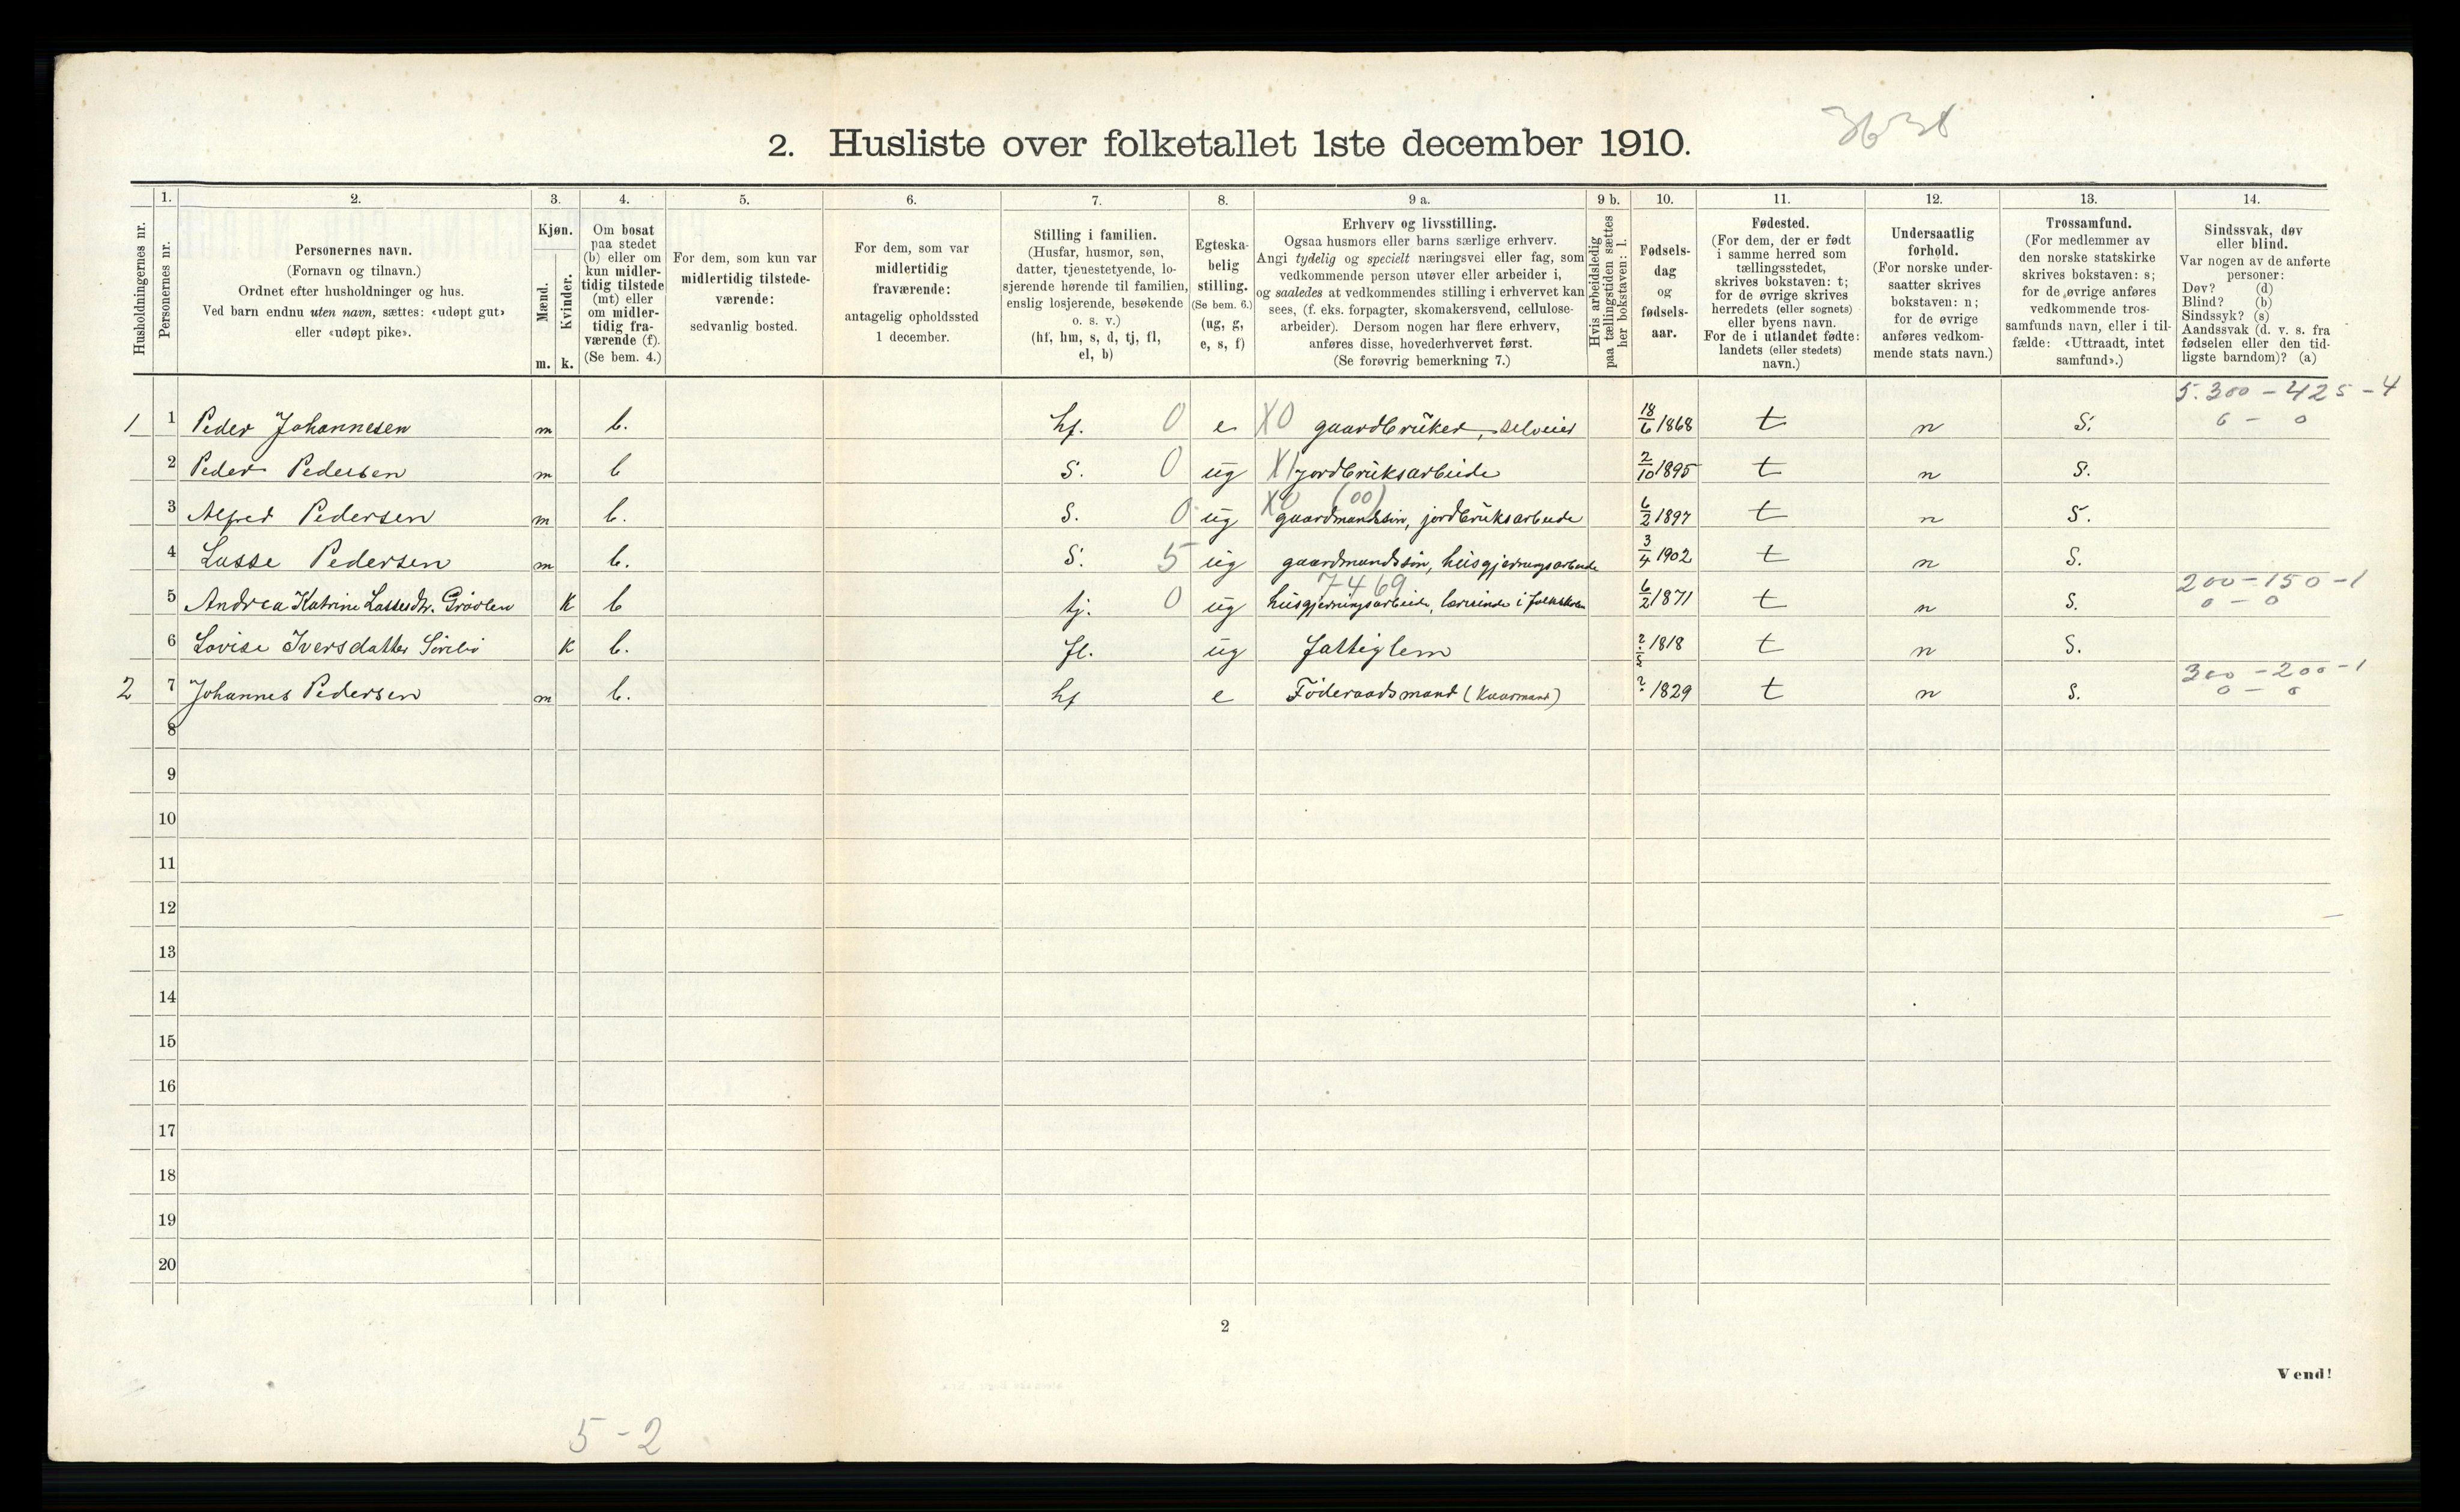 3638
2. Husliste over folketallet 1ste december 1910.
1. 2. 3. 4. 5. 6. 7. 8. 9 a. 9 b. 10. 11. 12. 13. 14.
Husholdningernes nr.
Personernes nr.
Personernes navn.
(Fornavn og tilnavn.)
Ordnet efter husholdninger og hus.
Ved barn endnu uten navn, sættes: «udøpt gut»
eller «udøpt pike».
Kjøn.
Mænd.
Kvinder.
m. k.
Om bosat
paa stedet
(b) eller om
kun midler-
tidig tilstede
(mt) eller
om midler-
tidig fra-
værende (f).
(Se bem. 4.)
For dem, som kun var
midlertidig tilstede-
værende:
sedvanlig bosted.
For dem, som var
midlertidig
fraværende:
antagelig opholdssted
1 december.
Stilling i familien.
(Husfar, husmor, søn,
datter, tjenestetyende, lo-
sjerende hørende til familien,
enslig losjerende, besøkende
o. s. v.)
(hf, hm, s, d, tj, fl,
el, b)
Egteska-
belig
stilling.
(Se bem. 6.)
(ug, g,
e, s, f)
Erhverv og livsstilling.
Ogsaa husmors eller barns særlige erhverv.
Angi tydelig og specielt næringsvei eller fag, som
vedkommende person utøver eller arbeider i,
og saaledes at vedkommendes stilling i erhvervet kan
sees, (f. eks. forpagter, skomakersvend, cellulose-
arbeider). Dersom nogen har flere erhverv,
anføres disse, hovederhvervet først.
(Se forøvrig bemerkning 7.)
Hvis arbeidsledig
paa tællingstiden sættes
her bokstaven: l.
Fødsels-
dag
og
fødsels-
aar.
Fødested.
(For dem, der er født
i samme herred som
tællingsstedet,
skrives bokstaven: t;
for de øvrige skrives
herredets (eller sognets)
eller byens navn.
For de i utlandet fødte:
landets (eller stedets)
navn.)
Undersaatlig
forhold.
(For norske under-
saatter skrives
bokstaven: n;
for de øvrige
anføres vedkom-
mende stats navn.)
Trossamfund.
(For medlemmer av
den norske statskirke
skrives bokstaven: s;
for de øvrige anføres
vedkommende tros-
samfunds navn, eller i til-
fælde: «Uttraadt, intet
samfund».)
Sindssvak, døv
eller blind.
Var nogen av de anførte
personer:
Døv? (d)
Blind? (b)
Sindssyk? (s)
Aandssvak (d. v. s. fra
fødselen eller den tid-
ligste barndom)? (a)
5.300 - 425 - 4
1 1 Peder Johannesen m b. hf. 0 e X0 gaardbruker, selveier 18/6 1868 t n S. 6 - 0
2 Peder Pedersen m b S. 0 ug X1 jordbruksarbeide 2/10 1895 t n S.
X0 (00)
3 Alfred Pedersen m b. S. 0 ug gaardmandssön, jordbruksarbeide 6/2 1897 t n S.
4 Lasse Pedersen m b. S. 5 ug gaardmandssön, husgjerningsarbeide 3/4 1902 t n S.
7469 200 - 150 - 1
5 Andrea Katrine Lassesdtr. Grövlen k b tj. 0 ug husgjerningsarbeide, lærerinde i folkeskolen 6/2 1871 t n S. 0 - 0
6 Lovise Iversdatter k b. fl. ug fattiglem ? 1818 t n S.
300 - 200 - 1
2 7 Johannes Pedersen m b. hf e Föderaadsmand (Kaarmand) ? 1829 t n S. 0 - 0
8
9
10
11
12
13
14
15
16
17
18
19
20
2
Vend!
5 - 2